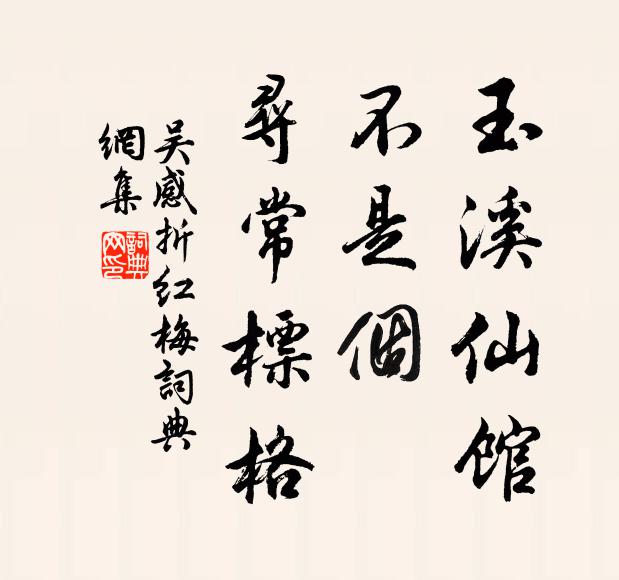 玉溪仙馆
不是個
尋常標格
吴感折红梅詞典
網集
詞典
网印